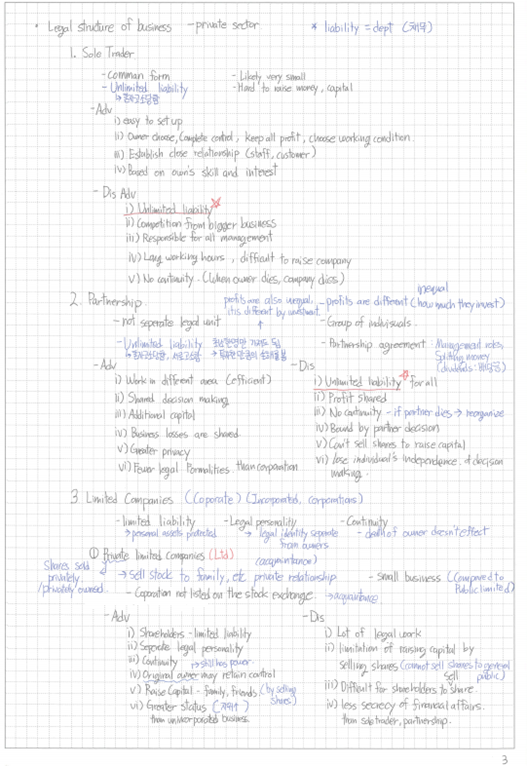 • Legal structure of business - private sector * liability = dept (채무)
1. Sole Trader
- Comman form - Likely very small
- Unlimited liability - Hard to raise money, capital
- Adv
i) easy to set up
ii) Owner choose, Complete control, keep all profit, choose working condition.
iii) Establish close relationship (staff, customer)
iv) Based on own's skill and interest
- Dis Adv
i) Unlimited liability
ii) Competition from bigger business
iii) Responsible for all management
iv) Long working hours, difficult to raise company
v) No continuity. (When owner dies, company dies)
2. Partnership.
profits are also unequal, it is different by investment.
inequal
- profits are different (how much they invest)
- not seperate legal unit - Group of indivisuals.
- Unlimited liability
- Partnership agreement : Management roles,
Splitting money
(dividends : 배당금)
- Adv
i) Work in different area (efficient)
ii) Shared decision making
iii) Additional capital
iv) Business losses are shared.
v) Greater privacy
vi) Fewer legal formalities. than corporation
- Dis
i) Unlimited liability for all
ii) Profit shared
iii) No continuity - if partner dies → reorganize
iv) Bound by partner decision
v) Can't sell shares to raise capital
vi) lose individual's independence of decision
making.
3 Limited Companies (Coporate) (Incorporated, corporations)
- limited liability - Legal personality - Continuity
↳ personal assets protected → legal identity seperate from owners - death of owner doesn't effect
① Private limited companies (Ltd)
Shares sold
privately
/privately owned.
(acqmintance)
→ sell stock to family, etc private relationship - small business (Compared to
Public limited)
- Coporation not listed on the stock exchange. → acquantance
- Adv
i) Shareholders - limited liability
ii) Seperate legal personality
iii) Continuity → still has power.
iv) Original owner may retain control
v) Raise Capital - family, friends (by selling
shares)
vi) Greater status (지위↑)
than unincorporated business.
- Dis
i) Lot of legal work
ii) limitation of raising capital by
selling shares (cannot sell shares to general
sell public)
iii) Difficult for shareholders to share.
iv) less secrecy of financial affairs.
than sole trader, partnership.
3